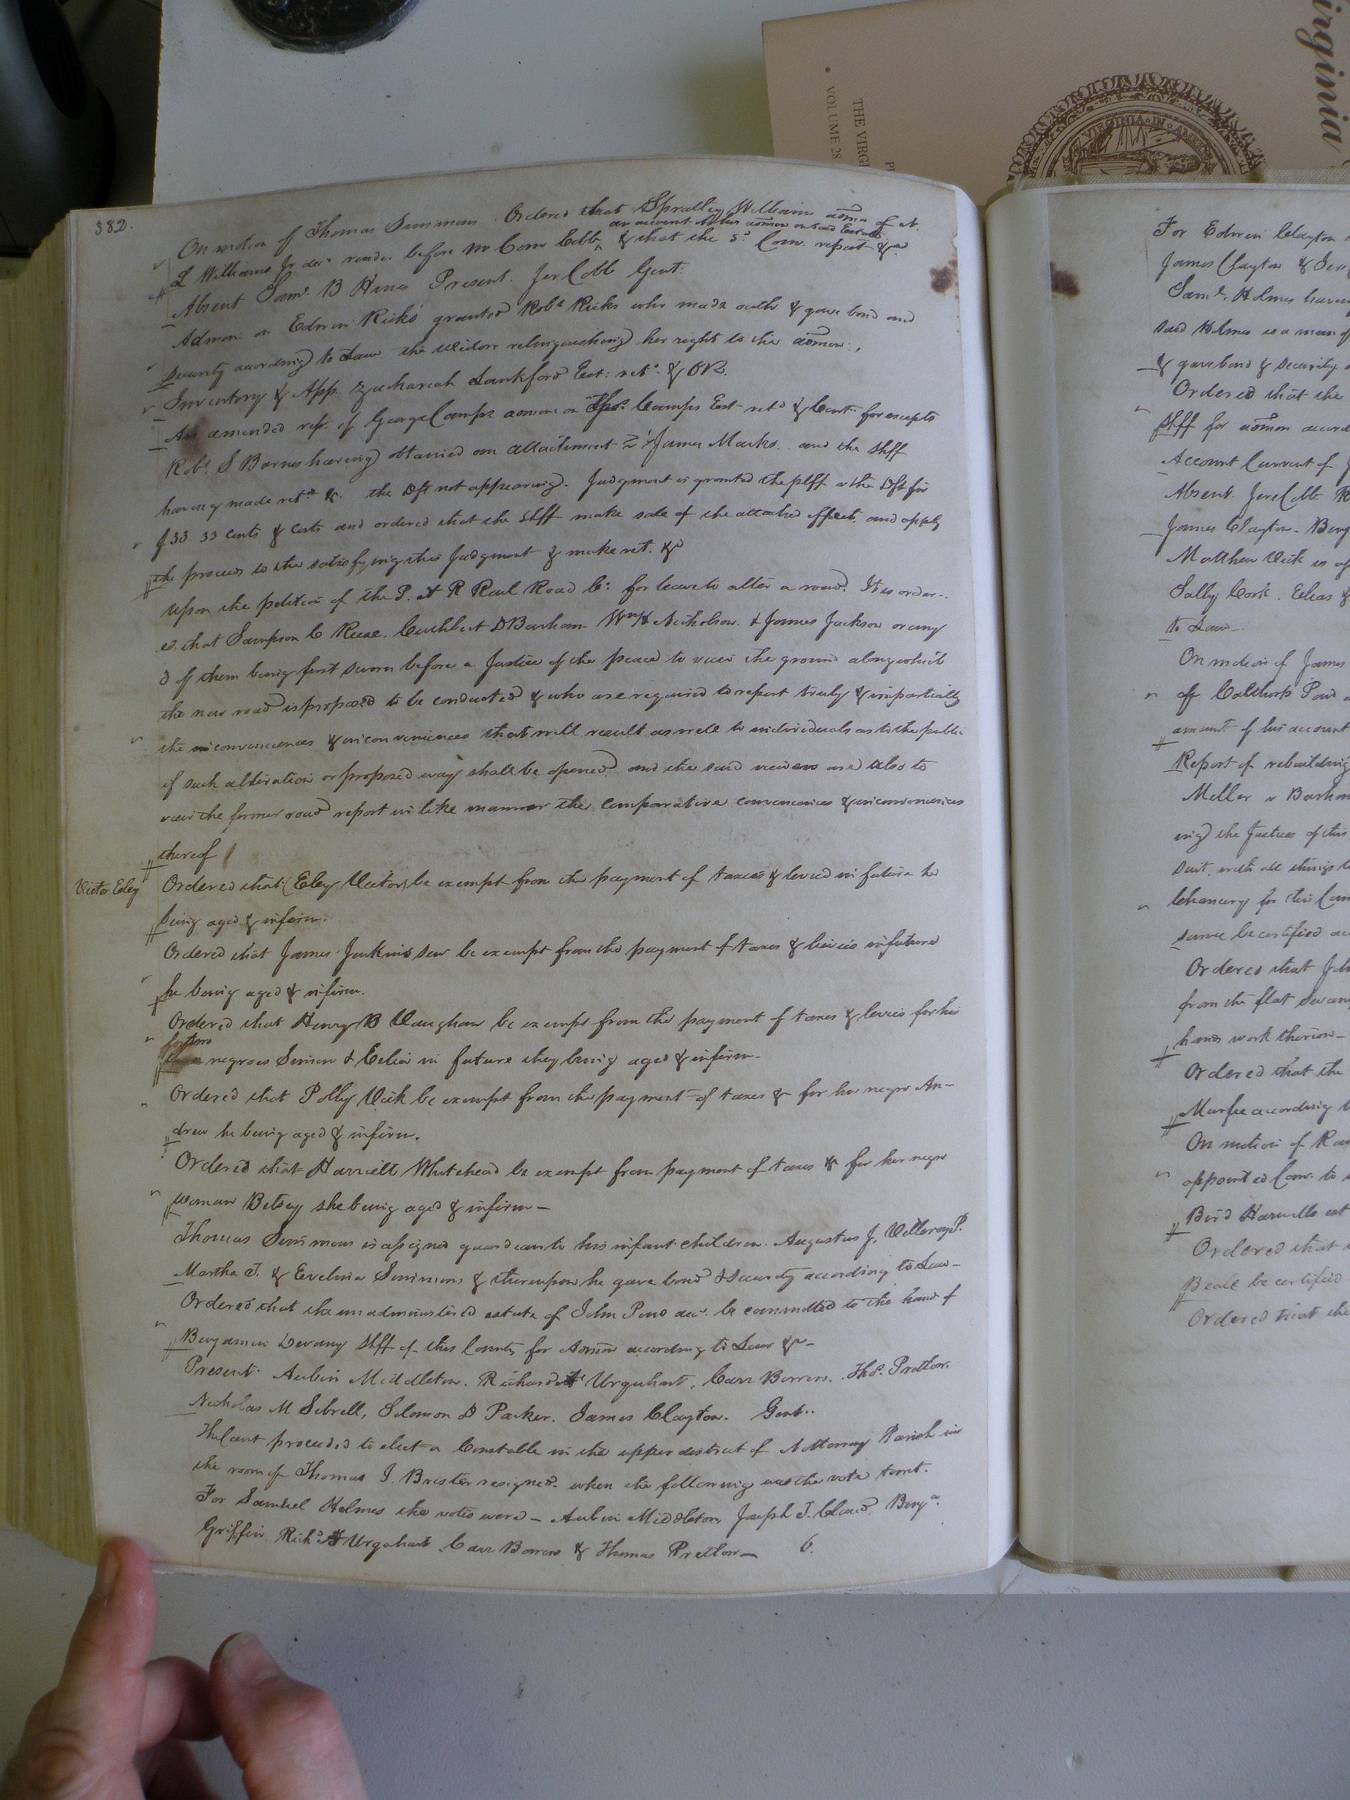 382.
On motion of Thomas Simmons Ordered that Spratley Williams admr of N.
an account of his admon on said Estate
L Williams Jr decd render before Mr Com Cobb & that the sd Com. report &c
Absent Saml. B Hines Present. Jer Cobb Gent:
Admon on Edwin Ricks granted Robt Ricks who made oath & gave bond and
security according to Law the widow relinquishing her right to the admon.,
Inventory & App. Zachariah Lankford Est: retd. & OR.
An amended rep. of George Camps admon on Thos. Camps Est retd & Cont. for excepts
Robt. S Barnes having obtained an attachment vs James Marks. and the Shff
having made retn &c. the Dft not appearing. Judgment is granted the plff vs the Dft for
$33 33 cents & Costs and ordered that the Shff make sale of the attached effects. and apply
the proceeds to the satisfying this Judgment & make ret. &c
Upon the petition of the P. & R Rail Road Co: for leave to alter a road. It is order-
ed that Sampson C Reese. Cuthbert D Barham Wm H Nicholson. & James Jackson or any
3 of them being first sworn before a Justice of the peace to view the ground along which
the new road is proposed to be conducted & who are required to report truly & impartially
the conveniences & inconveniences that will result as well to individuals as to the public
if such alteration or proposed way shall be opened and the said viewers are also to
view the former road report in like manner the comparative conveniences & inconveniences
thereof
Victor Eley
Ordered that (Eley Victor) be exempt from the payment of taxes & levies in future he
being aged & infirm.
Ordered that James Jenkins senr be exempt from the payment of taxes & levies in future
he being aged & infirm.
Ordered that Henry B Vaughan be exempt from the payment of taxes & levies for his
two
negroes Simon & Celia in future they being aged & infirm-
Ordered that Polly Vick be exempt from the payment of taxes &c for her negro An-
drew he being aged & infirm.
Ordered that Harriett Whitehead be exempt from payment of taxes &c for her negro
woman Betsey she being aged & infirm-
Thomas Simmons is assigned guardian to his infant children. Augustus J, P.
Martha T. & Evelina Simmons & thereupon he gave bond & security according to Law-
Ordered that the unadministered estate of John Pond decd. be committed to the hands of
Benjamin Devany Shff of this County for admon according to Law &c-
Present Aubin Middleton. Richard H Urquhart, Carr Bowers. Thos. Pretlow.
Nicholas M Sebrell, Solomon D Parker. James Clayton. Gent..
The Court proceeded to elect a Constable in the upper district of Nottoway Parish in
the room of Thomas J. Brister resigned. when the following was the vote tont.
For Samuel Holmes the votes were - Aubin Middleton Joseph T. Claud Benja.
Griffin Richd H Urquhart Carr Bowers & Thomas Pretlow- 6.
For Edwin Clayton
James Clayton & Jer
Saml. Holmes having
said Holmes is a man of
& gave bond & security
Ordered that the
Shff for admon accord
Account Current of
Absent. Jer Cobb
James Clayton. Benj
Matthew Vick is
Sally Cook. Elias &
to Law-
On motion of James
of Calthorps Pond
amount of his account
Report of rebuilding
Miller v Barham
ing the Justices of this
Suit, with all things
Chancery for this Coun
same be certified
Ordered that Joh
from the flat Swamp
hands work thereon-
Ordered that the
Murfee according
On motion of
appointed Com. to
Bird Harwells est
Ordered that
Beale be certified
Ordered that the
THE VIRG
VOLUME 28
irginia